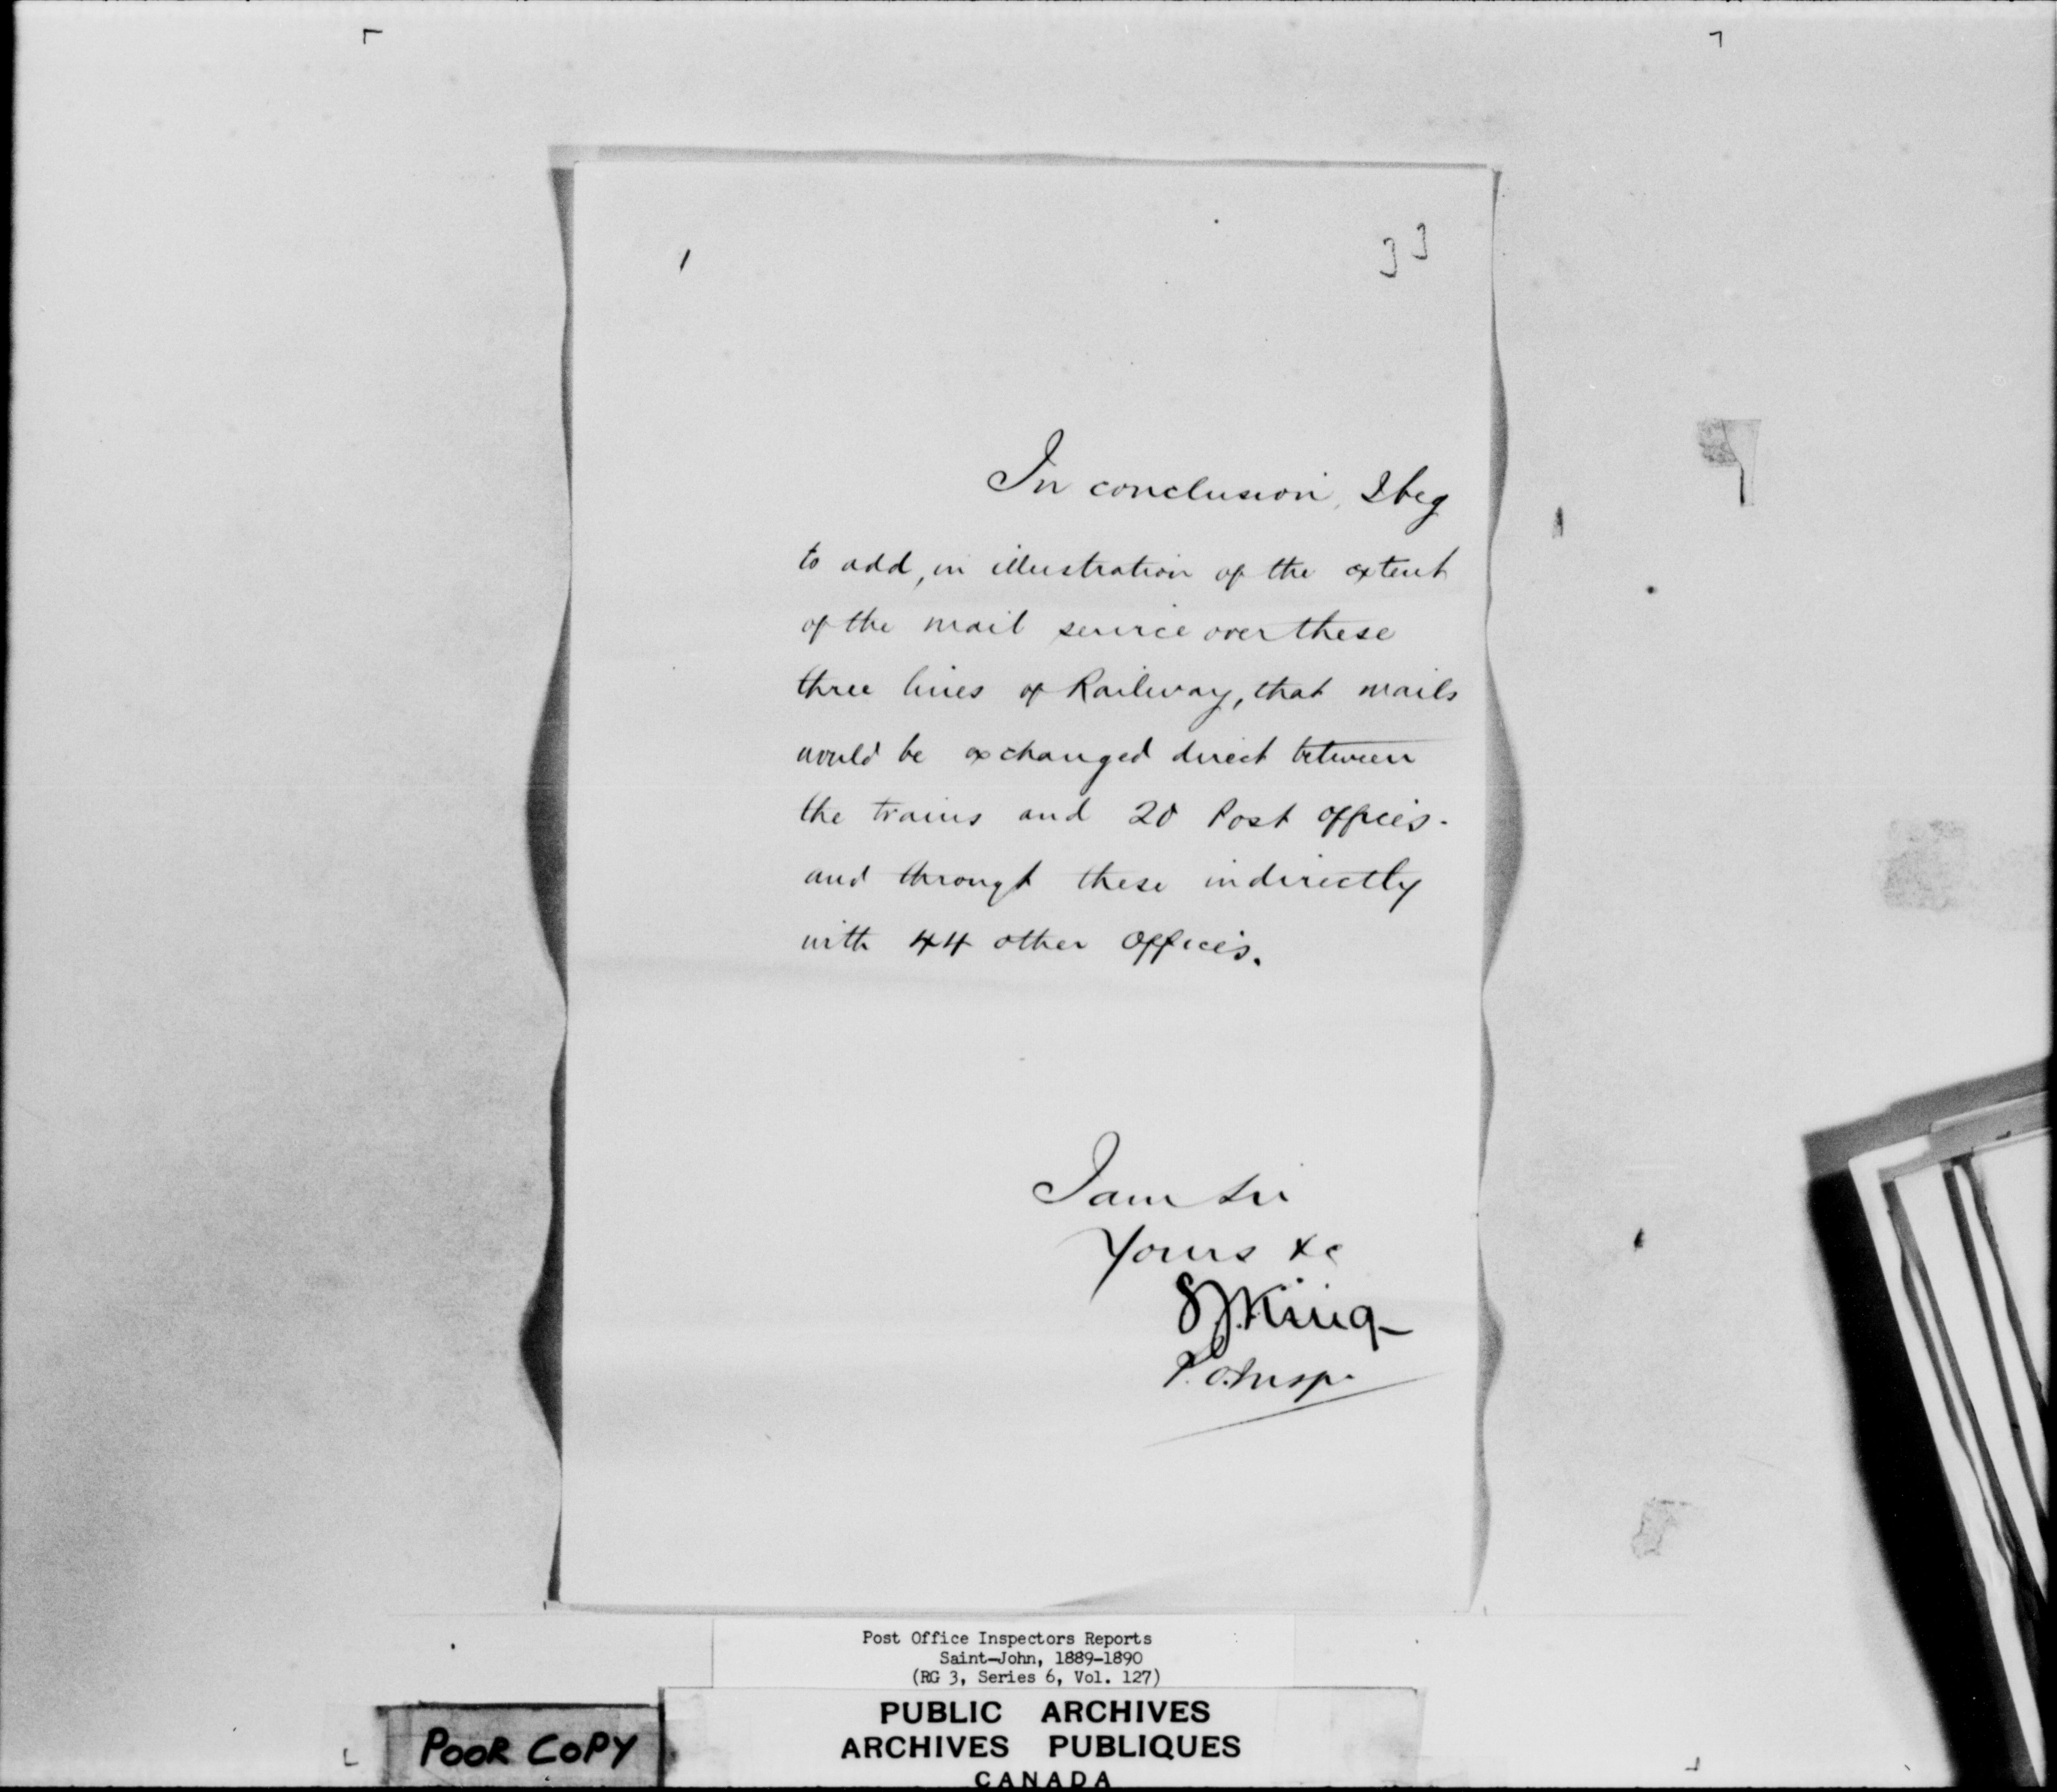 33
In conclusion, I beg
to add, in illustration of the extent
of the mail service over these
three lines of Railway, that mails
would be exchanged direct between
the trains and 20 Post offices.
and through these indirectly
with 44 other offices.
I am Sir
Yours &c
S J. King
P. O. Insp.
Post Office Inspectors Reports
Saint-John, 1889-1890
(RG 3, Series 6, Vol. 127)
PUBLIC ARCHIVES
ARCHIVES PUBLIQUES
CANADA
POOR COPY